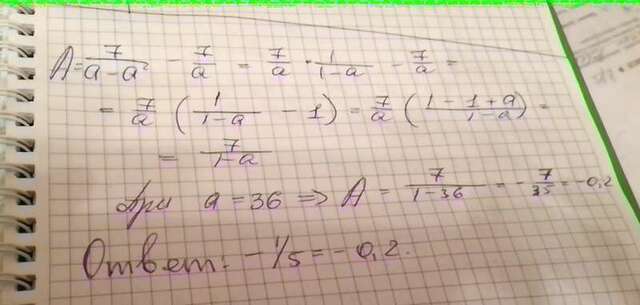 A = 7/(a - a²) - 7/a = 7/a · 1/(1-a) - 7/a =
= 7/a (1/(1-a) - 1) = 7/a ((1-1+a)/(1-a)) =
= 7/(1-a)
При a = 36 => A = 7/(1-36) = -7/35 = -0,2
Ответ: -1/5 = -0,2.